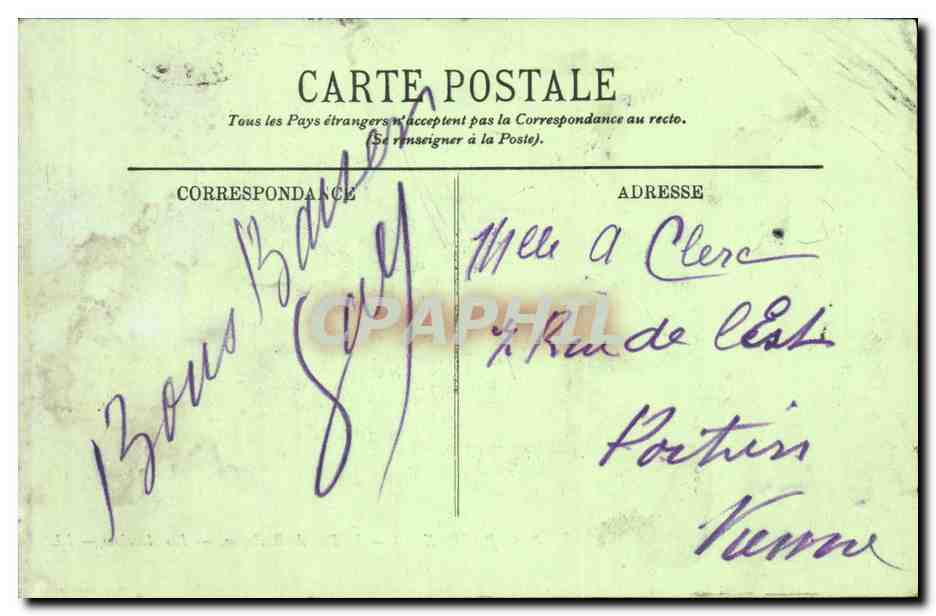 CARTE POSTALE
Tous les Pays étrangers n'acceptent pas la Correspondance au recto.
(Se renseigner à la Poste).
CORRESPONDANCE
Bons Baisers
ADRESSE
Mlle A Clerc
Rue de l'Est
Poitiers
Vienne
CPAPHIL